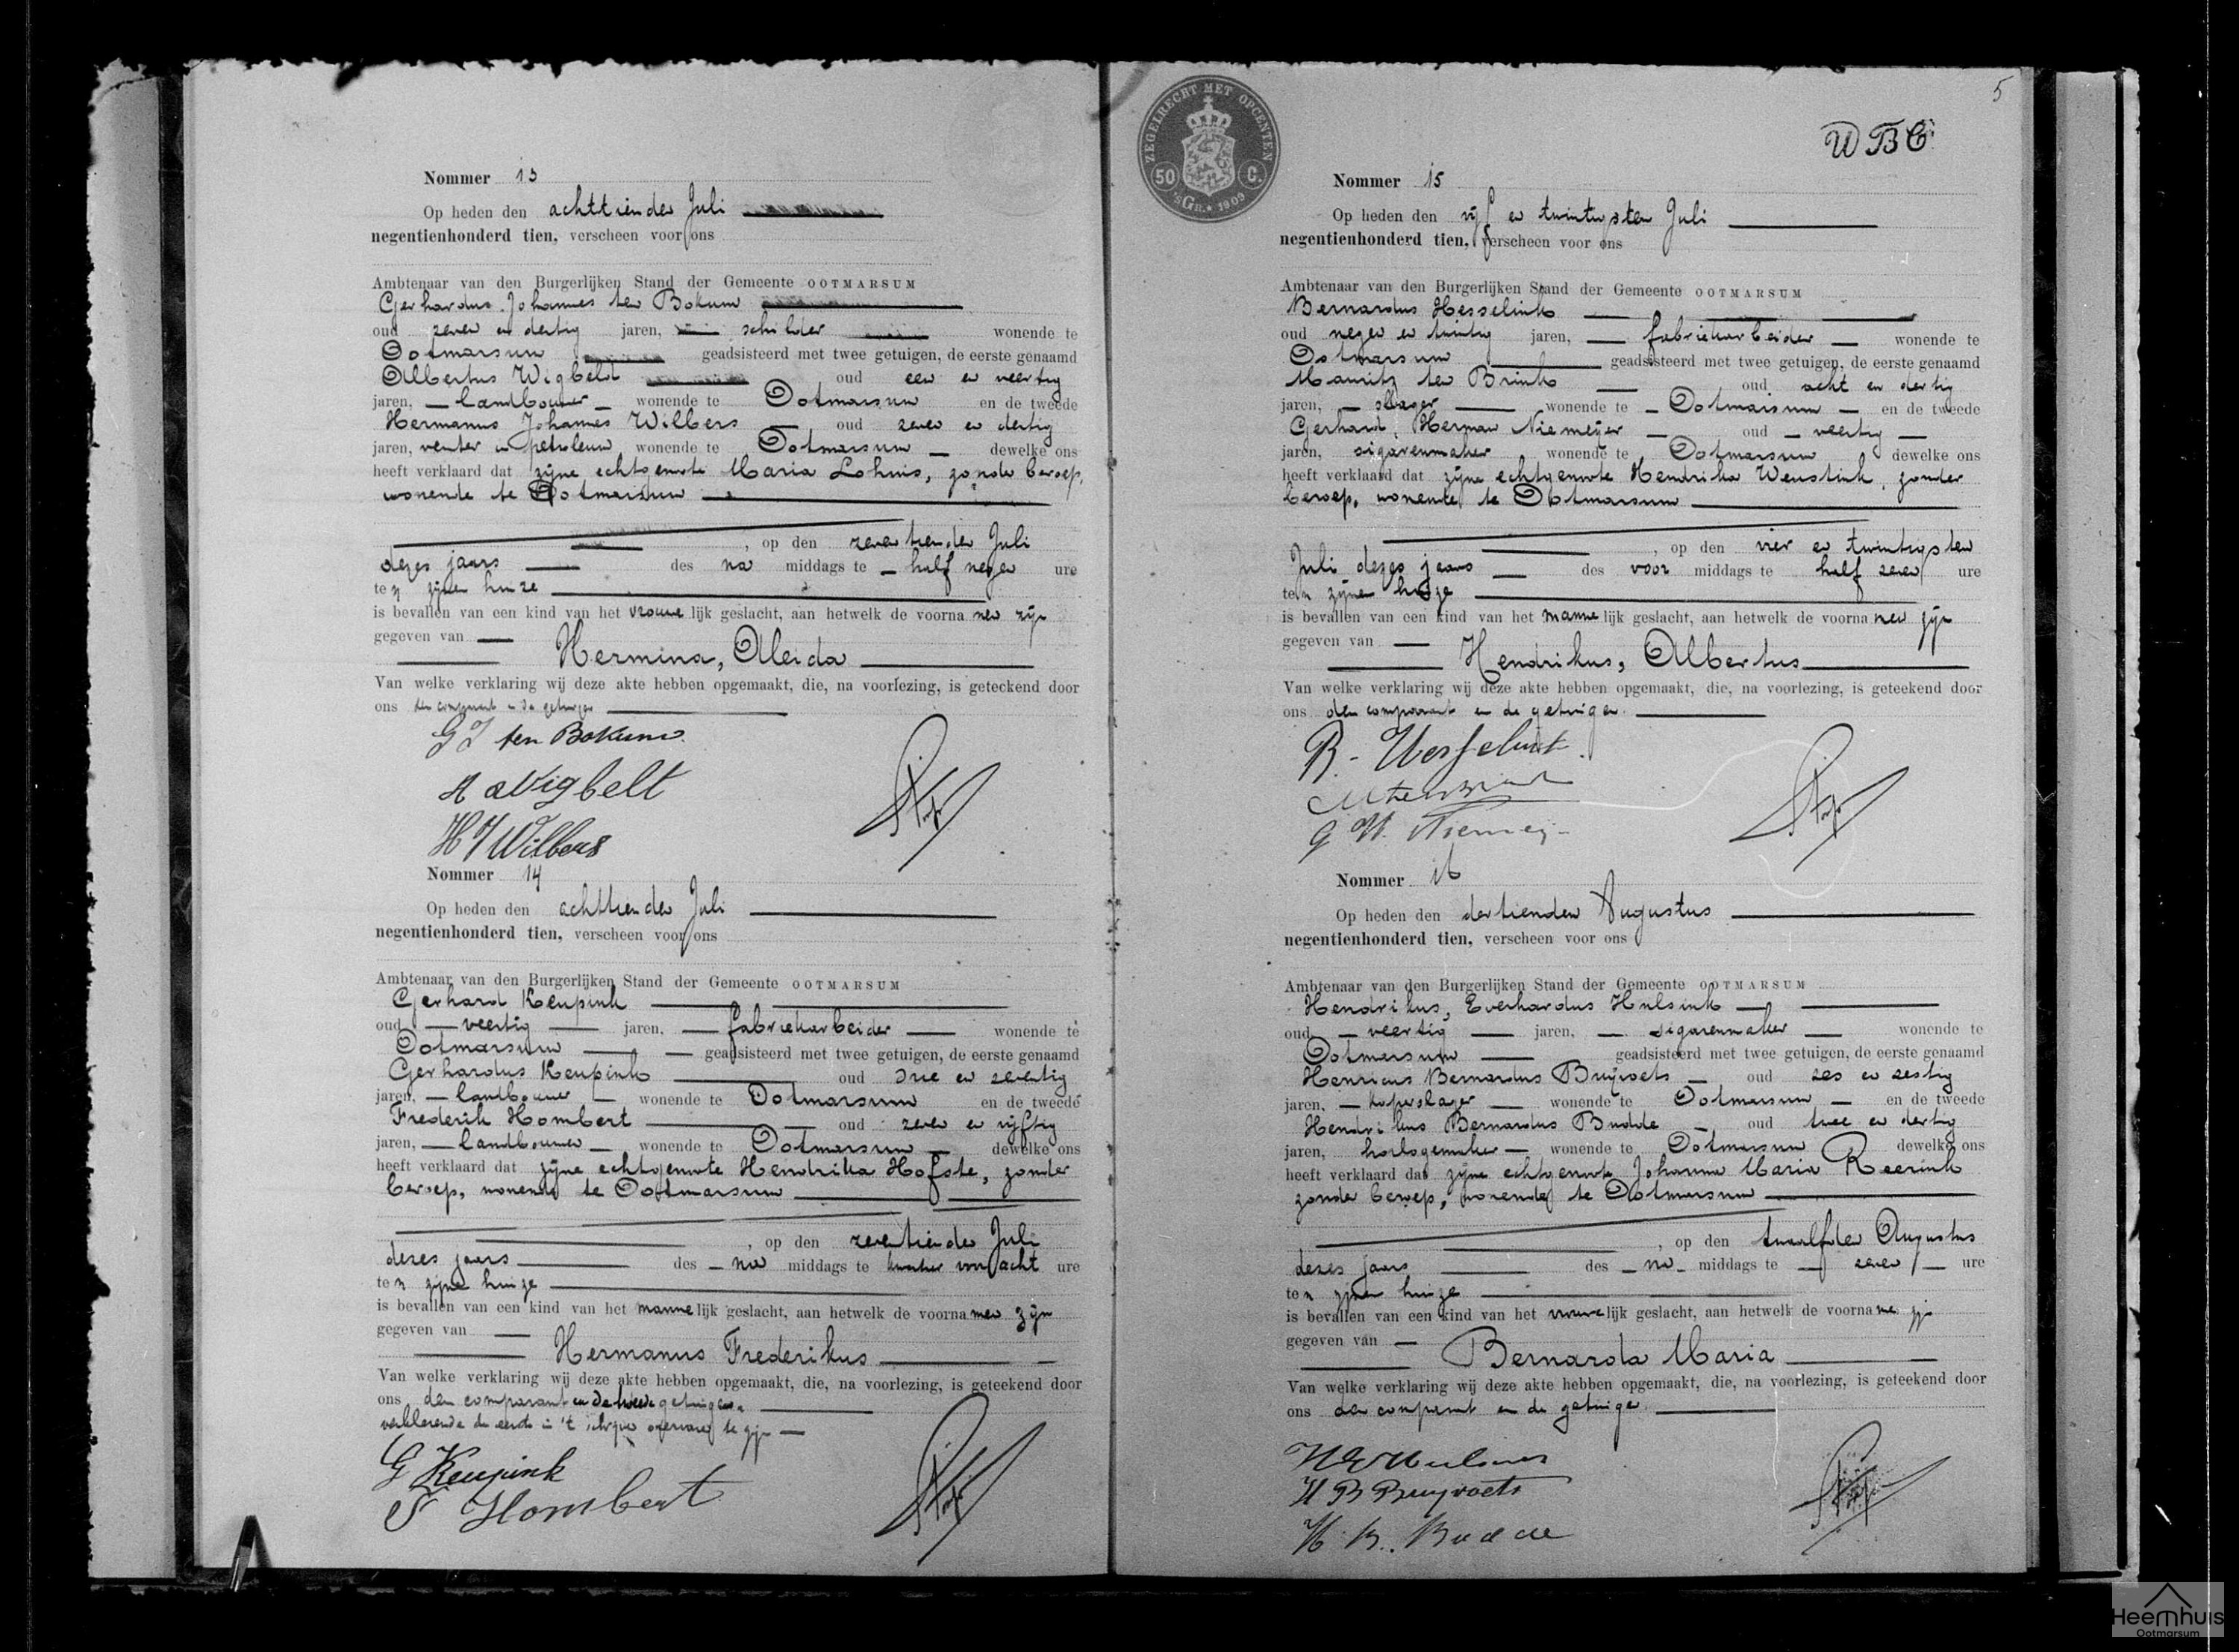 Nommer 13
Op heden den achttienden Juli
negentienhonderd tien, verscheen voor ons
Ambtenaar van den Burgerlijken Stand der Gemeente OOTMARSUM
Gerhardus Johannes ten Bokum
oud zeven en dertig jaren, schilder wonende te
Ootmarsum geadsisteerd met twee getuigen, de eerste genaamd
Albertus Wigbelt oud een en veertig
jaren, landbouwer wonende te Ootmarsum en de tweede
Hermanus Johannes Wilbers oud zeven en dertig
jaren, venter in petroleum wonende te Ootmarsum dewelke ons
heeft verklaard dat zijne echtgenoote Maria Lohuis, zonder beroep,
wonende te Ootmarsum
, op den zeventienden Juli
dezes jaars des na middags te half negen ure
ten zijnen huize
is bevallen van een kind van het vrouwelijk geslacht, aan hetwelk de voornamen zijn
gegeven van
Hermina, Aleida
Van welke verklaring wij deze akte hebben opgemaakt, die, na voorlezing, is geteekend door
ons den comparant en de getuigen
G J ten Bokum
A Wigbelt
H J Wilbers
Nommer 14
Op heden den achttienden Juli
negentienhonderd tien, verscheen voor ons
Ambtenaar van den Burgerlijken Stand der Gemeente OOTMARSUM
Gerhard Keupink
oud veertig jaren, fabriekarbeider wonende te
Ootmarsum geadsisteerd met twee getuigen, de eerste genaamd
Gerhardus Keupink oud drie en zeventig
jaren, landbouwer wonende te Ootmarsum en de tweede
Frederik Hombert oud zeven en vijftig
jaren, landbouwer wonende te Ootmarsum dewelke ons
heeft verklaard dat zijne echtgenoote Hendrika Hofste, zonder
beroep, wonende te Ootmarsum
, op den zeventienden Juli
dezes jaars des na middags te kwartier voor acht ure
ten zijnen huize
is bevallen van een kind van het mannelijk geslacht, aan hetwelk de voornamen zijn
gegeven van
Hermanus Frederikus
Van welke verklaring wij deze akte hebben opgemaakt, die, na voorlezing, is geteekend door
ons den comparant en de tweede getuige,
verklarende de eerste in 't schrijven onervaren te zijn
G Keupink
F Hombert
ZEGELRECHT MET OPCENTEN
50 C.
'sGR. 1909
5
WBC
Nommer 15
Op heden den vijf en twintigsten Juli
negentienhonderd tien, verscheen voor ons
Ambtenaar van den Burgerlijken Stand der Gemeente OOTMARSUM
Bernardus Hesselink
oud negen en twintig jaren, fabriekarbeider wonende te
Ootmarsum geadsisteerd met twee getuigen, de eerste genaamd
Mauritz ten Brink oud acht en dertig
jaren, slager wonende te Ootmarsum en de tweede
Gerhard, Herman Niemeijer oud veertig
jaren, sigarenmaker wonende te Ootmarsum dewelke ons
heeft verklaard dat zijne echtgenoote Hendrika Wenstink, zonder
beroep, wonende te Ootmarsum
, op den vier en twintigsten
Juli dezes jaars des voor middags te half zeven ure
ten zijnen huize
is bevallen van een kind van het mannelijk geslacht, aan hetwelk de voornamen zijn
gegeven van
Hendrikus, Albertus
Van welke verklaring wij deze akte hebben opgemaakt, die, na voorlezing, is geteekend door
ons den comparant en de getuigen
B. Hesselink
M ten Brink
G H. Niemeij
Nommer 16
Op heden den dertienden Augustus
negentienhonderd tien, verscheen voor ons
Ambtenaar van den Burgerlijken Stand der Gemeente OOTMARSUM
Hendrikus, Everhardus Hulsink
oud veertig jaren, sigarenmaker wonende te
Ootmarsum geadsisteerd met twee getuigen, de eerste genaamd
Henricus Bernardus Bruijvoets oud zes en zestig
jaren, koperslager wonende te Ootmarsum en de tweede
Hendrikus Bernardus Budde oud twee en dertig
jaren, horlogemaker wonende te Ootmarsum dewelke ons
heeft verklaard dat zijne echtgenoote Johanna Maria Reerink
zonder beroep, wonende te Ootmarsum
, op den twaalfden Augustus
dezes jaars des na middags te zeven ure
ten zijnen huize
is bevallen van een kind van het vrouwelijk geslacht, aan hetwelk de voornamen zijn
gegeven van
Bernarda Maria
Van welke verklaring wij deze akte hebben opgemaakt, die, na voorlezing, is geteekend door
ons den comparant en de getuigen
H B Bruyvoets
H. B. Budde
Heemhuis
Ootmarsum